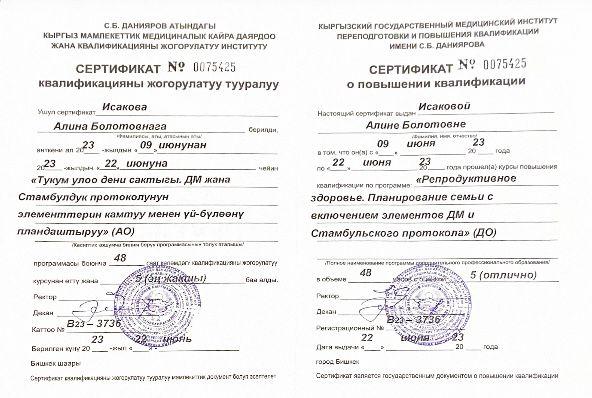 С.Б. ДАНИЯРОВ АТЫНДАГЫ
КЫРГЫЗ МАМЛЕКЕТТИК МЕДИЦИНАЛЫК КАЙРА ДАЯРДОО
ЖАНА КВАЛИФИКАЦИЯНЫ ЖОГОРУЛАТУУ ИНСТИТУТУ
СЕРТИФИКАТ № 0075425
квалификацияны жогорулатуу тууралуу
Ушул сертификат Исакова
Алина Болотовнага берилди,
/Фамилиясы, аты, атасынын аты/
анткени ал 2023 -жылдын « 09 » июнунан
2023 -жылдын « 22 » июнуна чейин
«Тукум улоо дени сактыгы. ДМ жана
Стамбулдук протоколунун
элементтерин камтуу менен үй-бүлөнү
пландаштыруу» (АО)
программасы боюнча 48 саат көлөмдөгү квалификацияны жогорулатуу
курсунан өттү жана 5 (эң жакшы) баа алды.
Ректор
Декан
Каттоо № В23 – 3736
Берилген күнү 2023 -жыл « 22 » июнь
Бишкек шаары
Сертификат квалификацияны жогорулатуу тууралуу мамлекеттик документ болуп эсептелет
КЫРГЫЗСКИЙ ГОСУДАРСТВЕННЫЙ МЕДИЦИНСКИЙ ИНСТИТУТ
ПЕРЕПОДГОТОВКИ И ПОВЫШЕНИЯ КВАЛИФИКАЦИИ
ИМЕНИ С.Б. ДАНИЯРОВА
СЕРТИФИКАТ № 0075425
о повышении квалификации
Настоящий сертификат выдан Исаковой
Алине Болотовне
/Фамилия, имя, отчество/
в том, что он(а) с « 09 » июня 2023 года
по « 22 » июня 2023 года прошел(а) курсы повышения
квалификации по программе: «Репродуктивное
здоровье. Планирование семьи с
включением элементов ДМ и
Стамбульского протокола» (ДО)
/Полное наименование программы дополнительного профессионального образования/
в объеме 48 часов с оценкой 5 (отлично)
Ректор
Декан
Регистрационный № В23 – 3736
Дата выдачи « 22 » июня 2023 года
город Бишкек
Сертификат является государственным документом о повышении квалификации